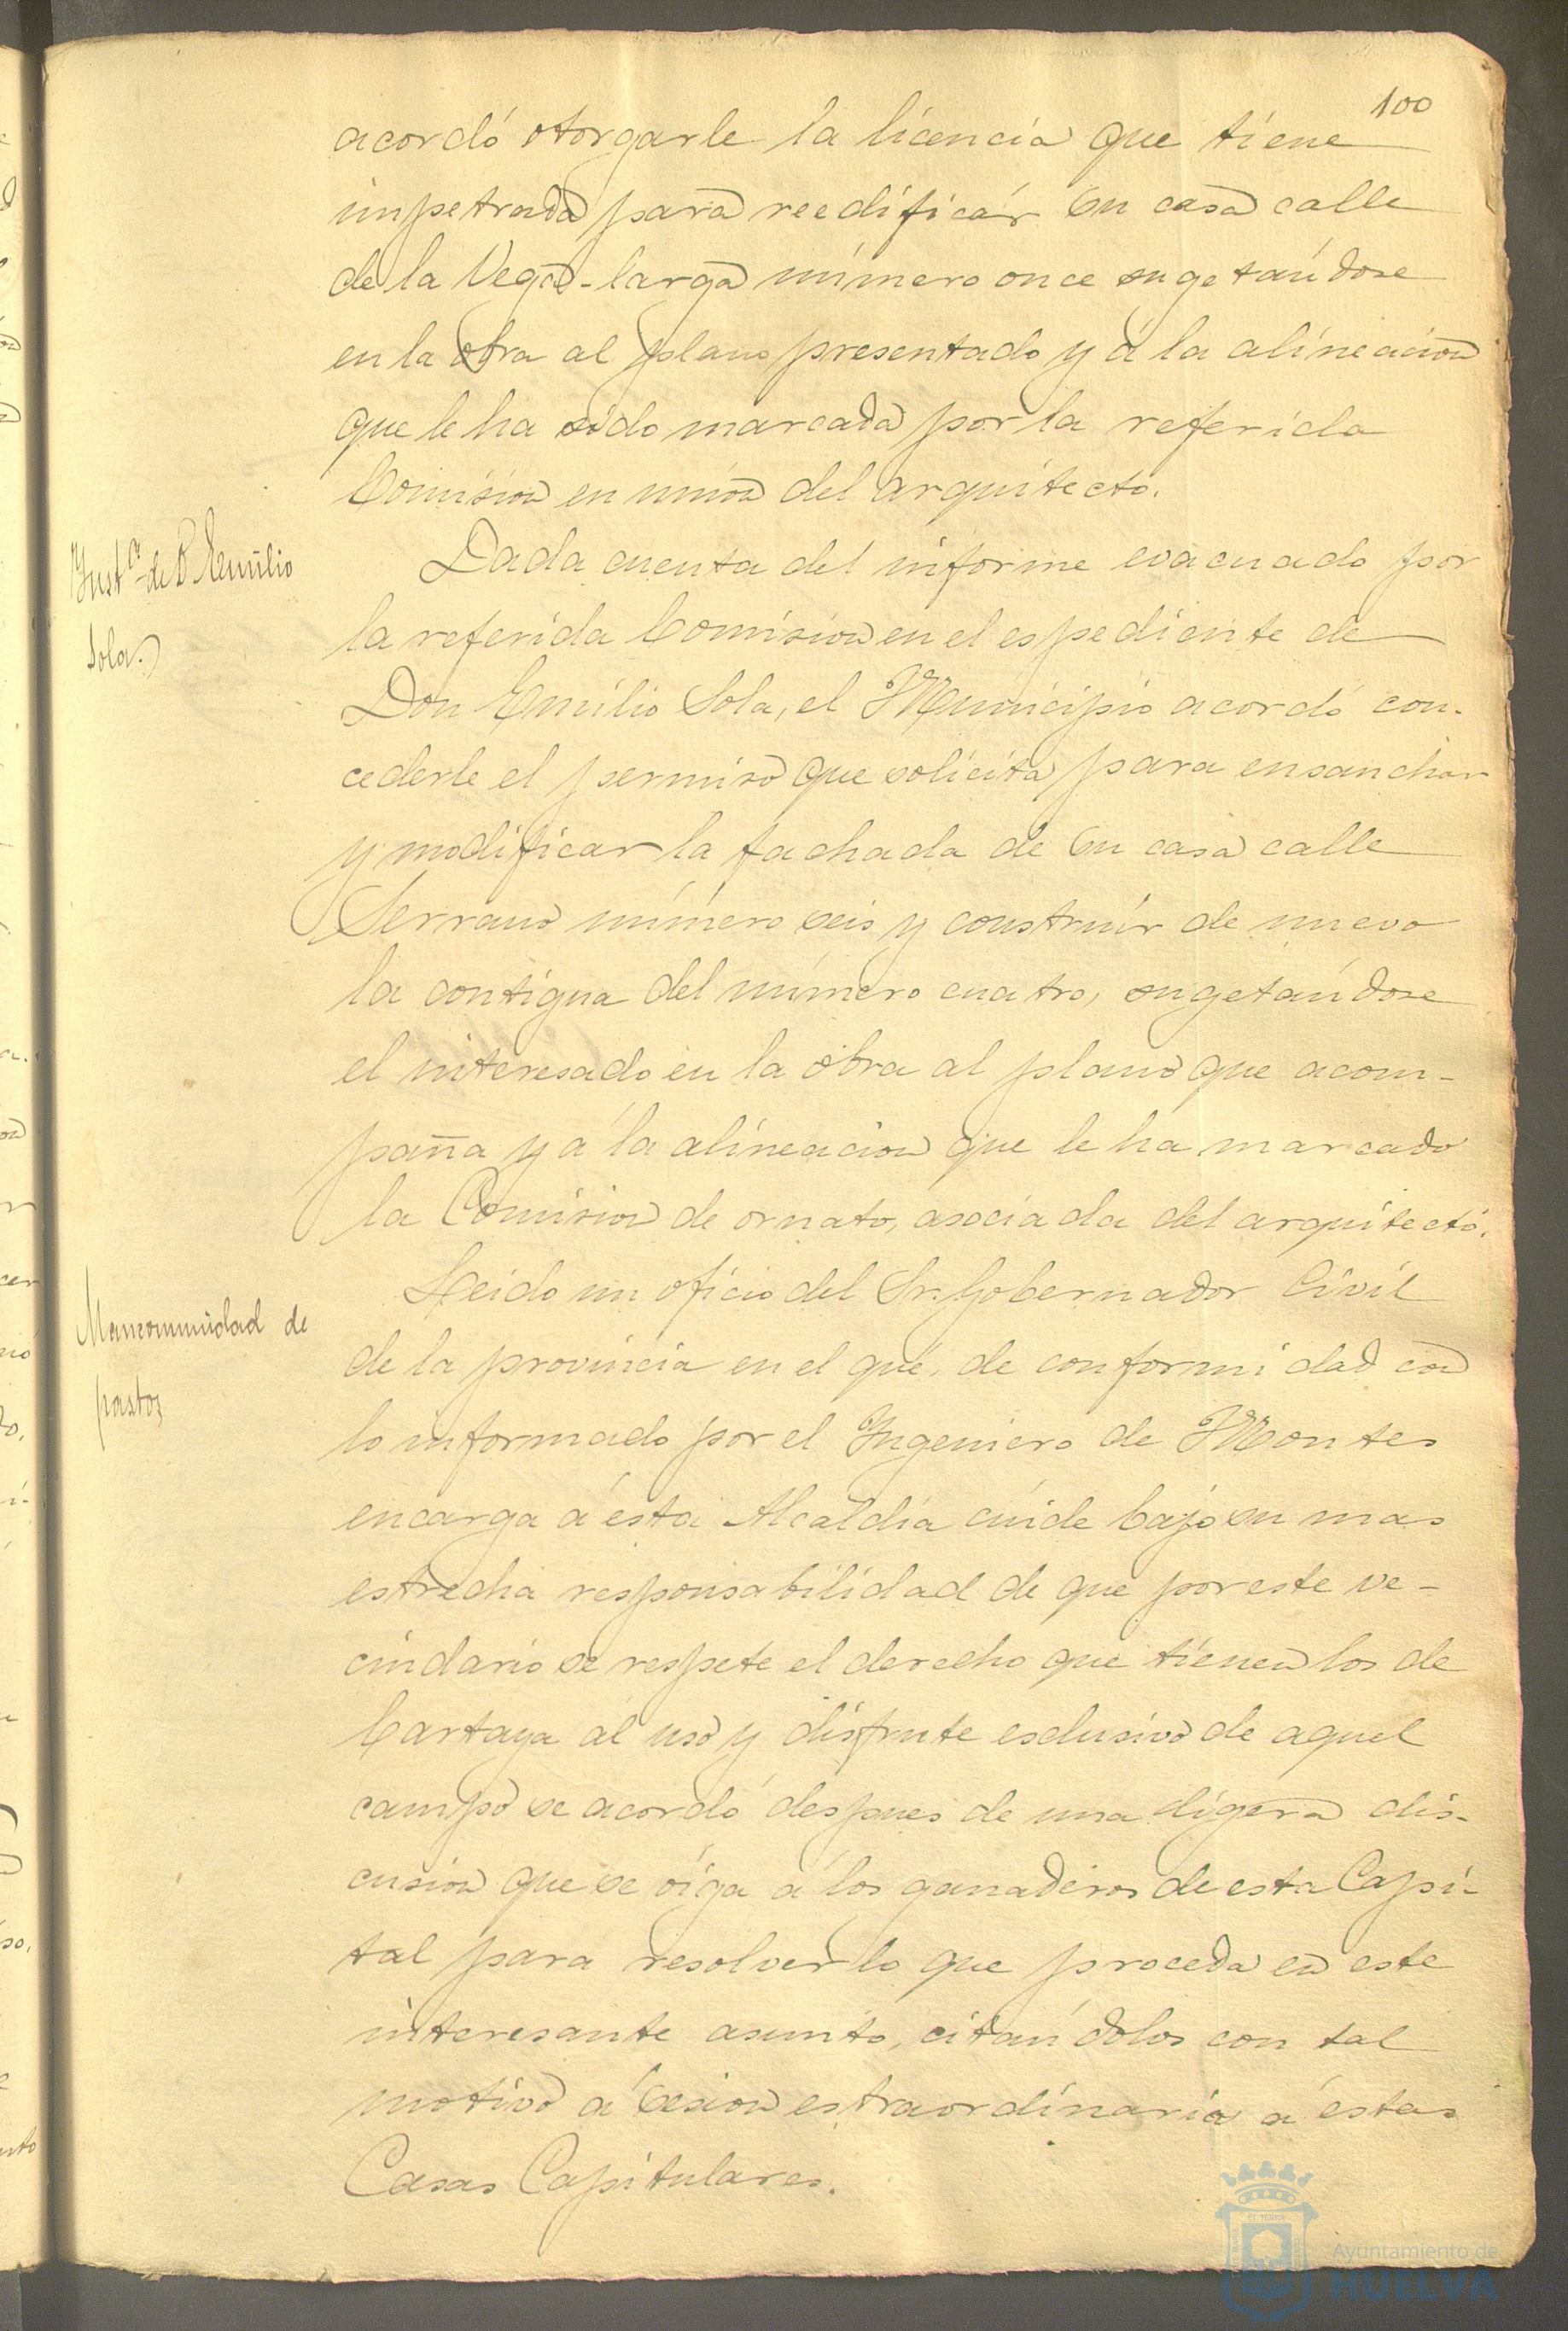 100
acordó otorgarle la licencia que tiene
impetrada para reedificár su casa calle
de la Vega-larga número once sugetándose
en la obra al plano presentado y á la alineacion
que le ha sido marcada por la referida
Comision en union del arquitecto.
Inst.ª de D. Emilio
Sola.
Dada cuenta del informe evacuado por
la referida Comision en el espediente de
Don Emilio Sola, el Municipio acordó con-
cederle el permiso que solicita para ensanchar
y modificar la fachada de su casa calle
Serrano número seis y construir de nuevo
la contigua del número cuatro, sugetándose
el interesado en la obra al plano que acom-
paña y á la alineacion que le ha marcado
la Comision de ornato, asociada del arquitecto.
Mancomunidad de
pastos
Leido un oficio del Sr. Gobernador Civil
de la provincia en el qué, de conformidad con
lo informado por el Ingeniero de Montes
encarga á ésta Alcaldía cuide bajo su mas
estrecha responsabilidad de que por este ve-
cindario se respete el derecho que tienen los de
Cartaya al uso y disfrute esclusivo de aquel
campo se acordó despues de una ligera dis-
cusion que se oiga á los ganaderos de esta Capi-
tal para resolver lo que proceda en este
interesante asunto, citándolos con tal
motivo á sesion estraordinaria á éstas
Casas Capitulares.
Ayuntamiento de
HUELVA